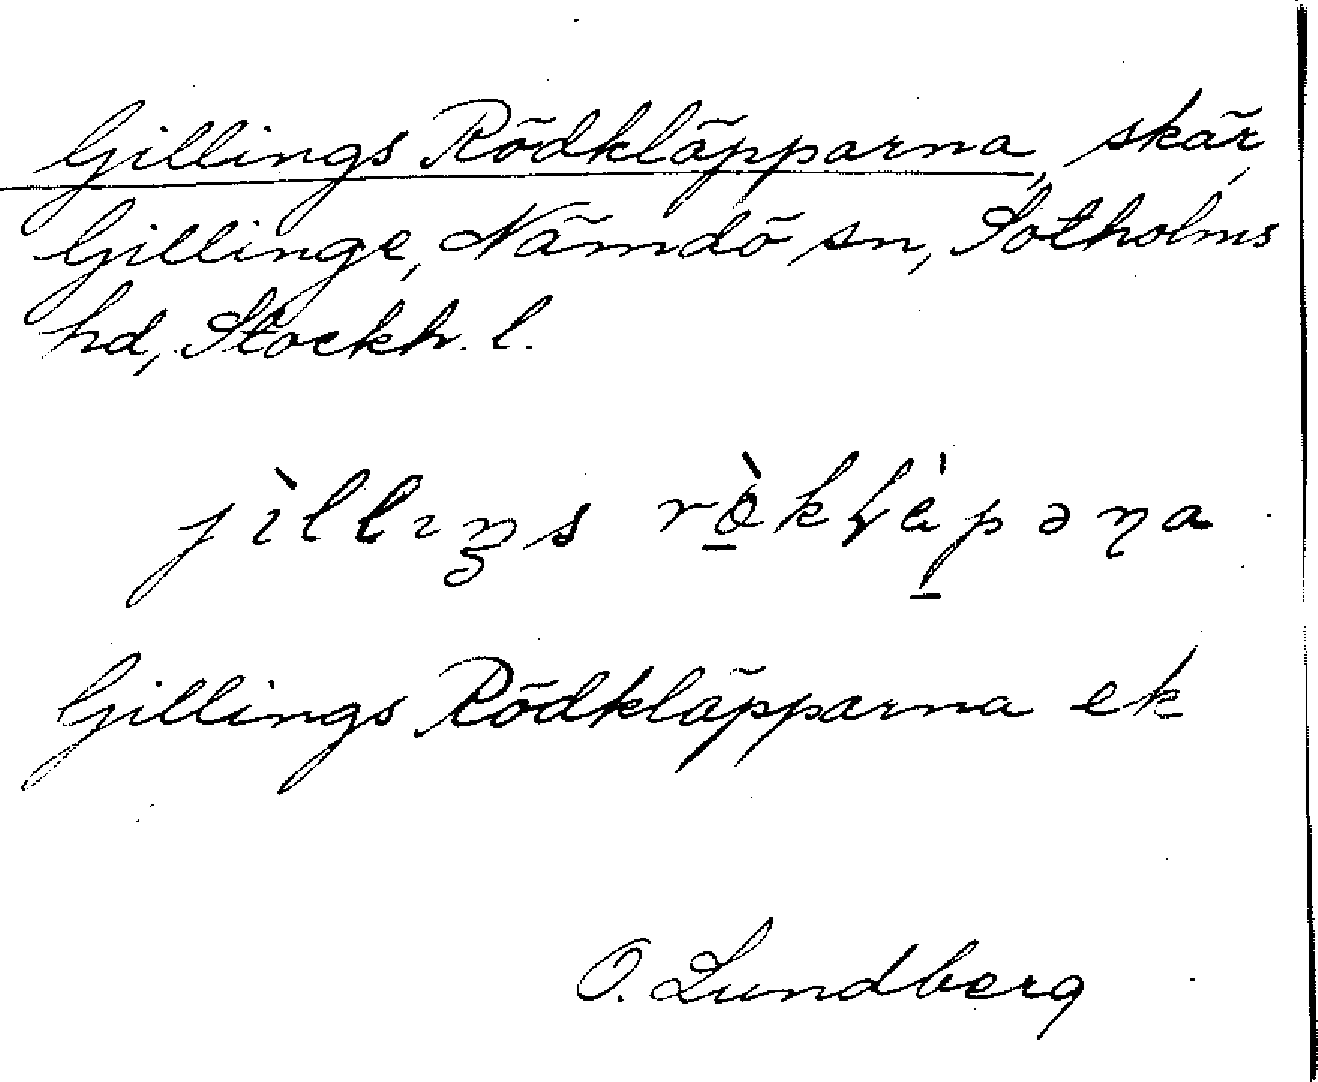 Gillings Rödkläpparna, skär,
Gillinge, Nämdö sn, Sotholms
hd, Stockh. l.
jìllıŋs rö̀kḷäpəṇa
Gillings Rödkläpparna ek
O. Lundberg